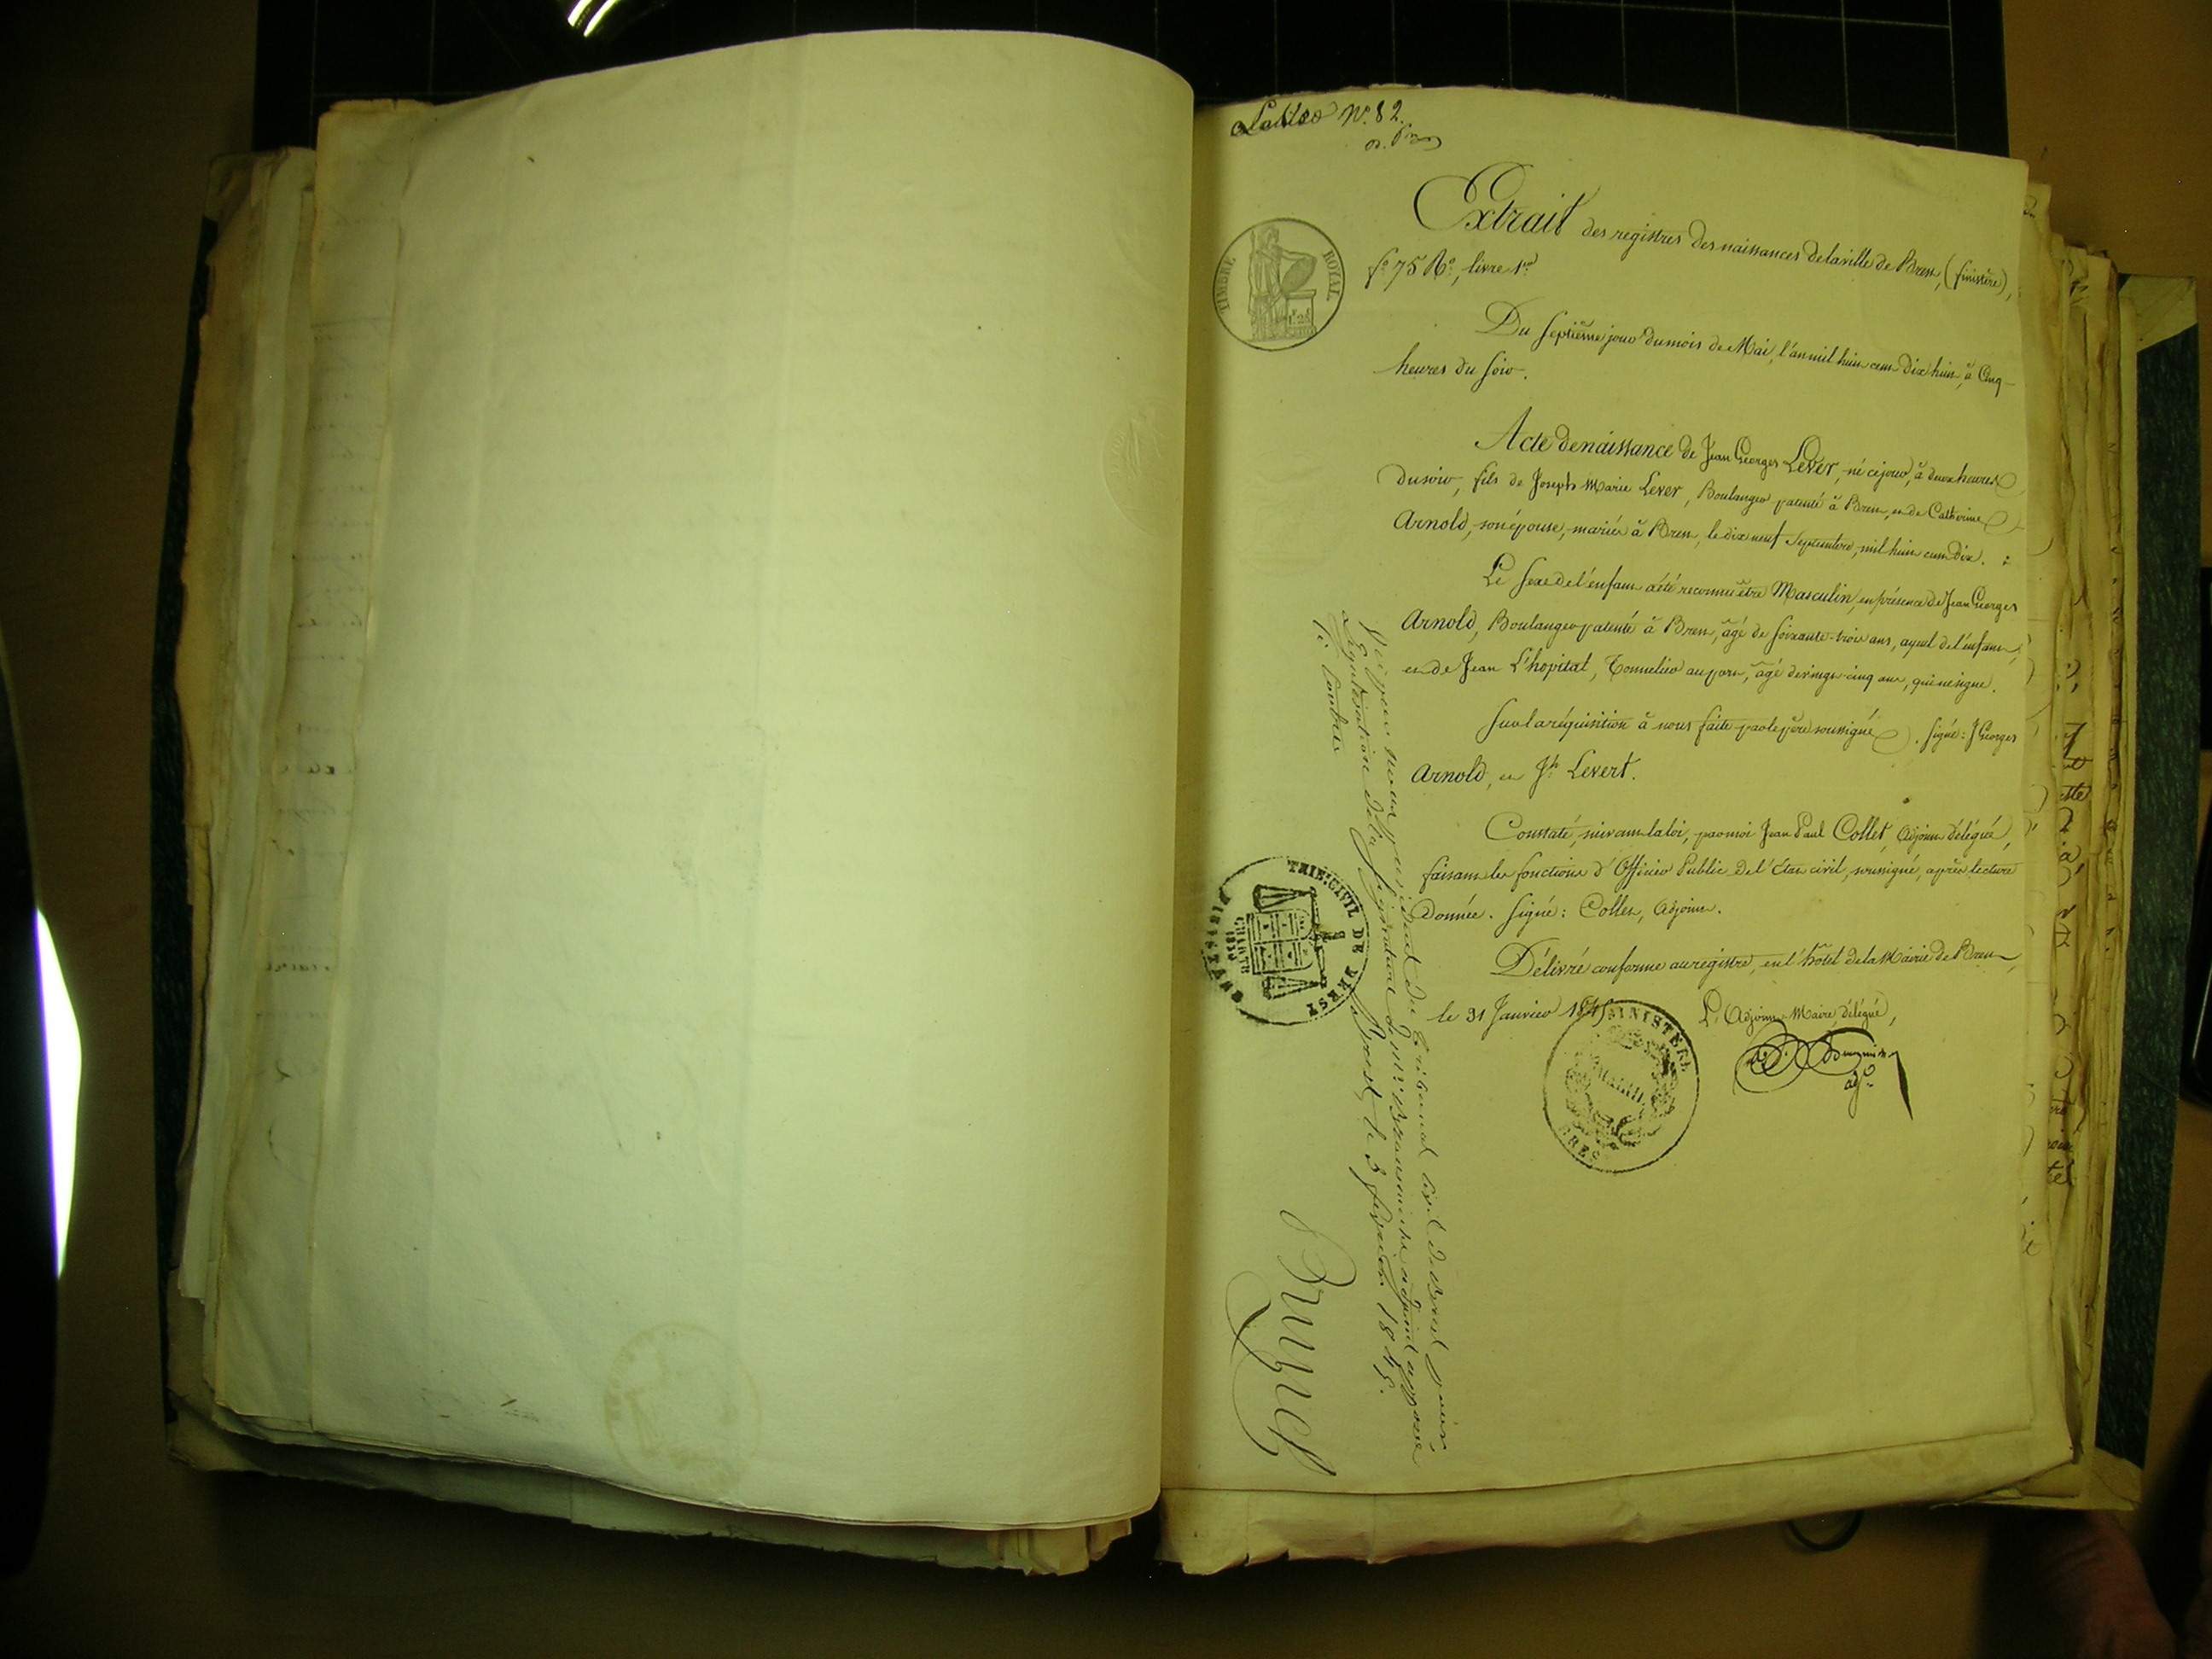 N.° 82.
Extrait des registres des naissances de la ville de Brest, (finistère),
f.° 75 R.°, livre 1.er
TIMBRE ROYAL
Du Septième jour du mois de Mai, l'an mil huit cent dix huit, à Cinq
heures du soir.
Acte de naissance de Jean Georges Lever, né ce jour, à deux heures
du soir, fils de Joseph Marie Lever, Boulanger patenté à Brest, et de Catherine
Arnold, son épouse, mariés à Brest, le dix neuf Septembre, mil huit cent dix. :
Le sexe de l'enfant a été reconnu être Masculin, en présence de Jean Georges
Arnold, Boulanger patenté à Brest, âgé de soixante-trois ans, ayeul de l'enfant,
et de Jean L'hopital, Tonnelier au port, âgé de vingt-cinq ans, qui ne signe.
Sur la réquisition à nous faite par le père soussigné. Signé : J Georges
Arnold, et J.h Levert.
Constaté, suivant la loi, par moi Jean Paul Collet, Adjoint délégué,
faisant les fonctions d'Officier Public de l'État civil, soussigné, après lecture
donnée. Signé : Collet, Adjoint.
Délivré conforme au registre, en l'hôtel de la Mairie de Brest,
le 31 Janvier 1845
L'Adjoint-Maire délégué,
adj.t
FINISTÈRE
MAIRIE
BREST
Vu par nous président du tribunal civil de Brest pour
Légalisation de la signature de Mr adjoint apposée
Brest, le 3 février 1845.
TRIB. CIVIL DE BREST
FINISTÈRE
CHARTE
1830